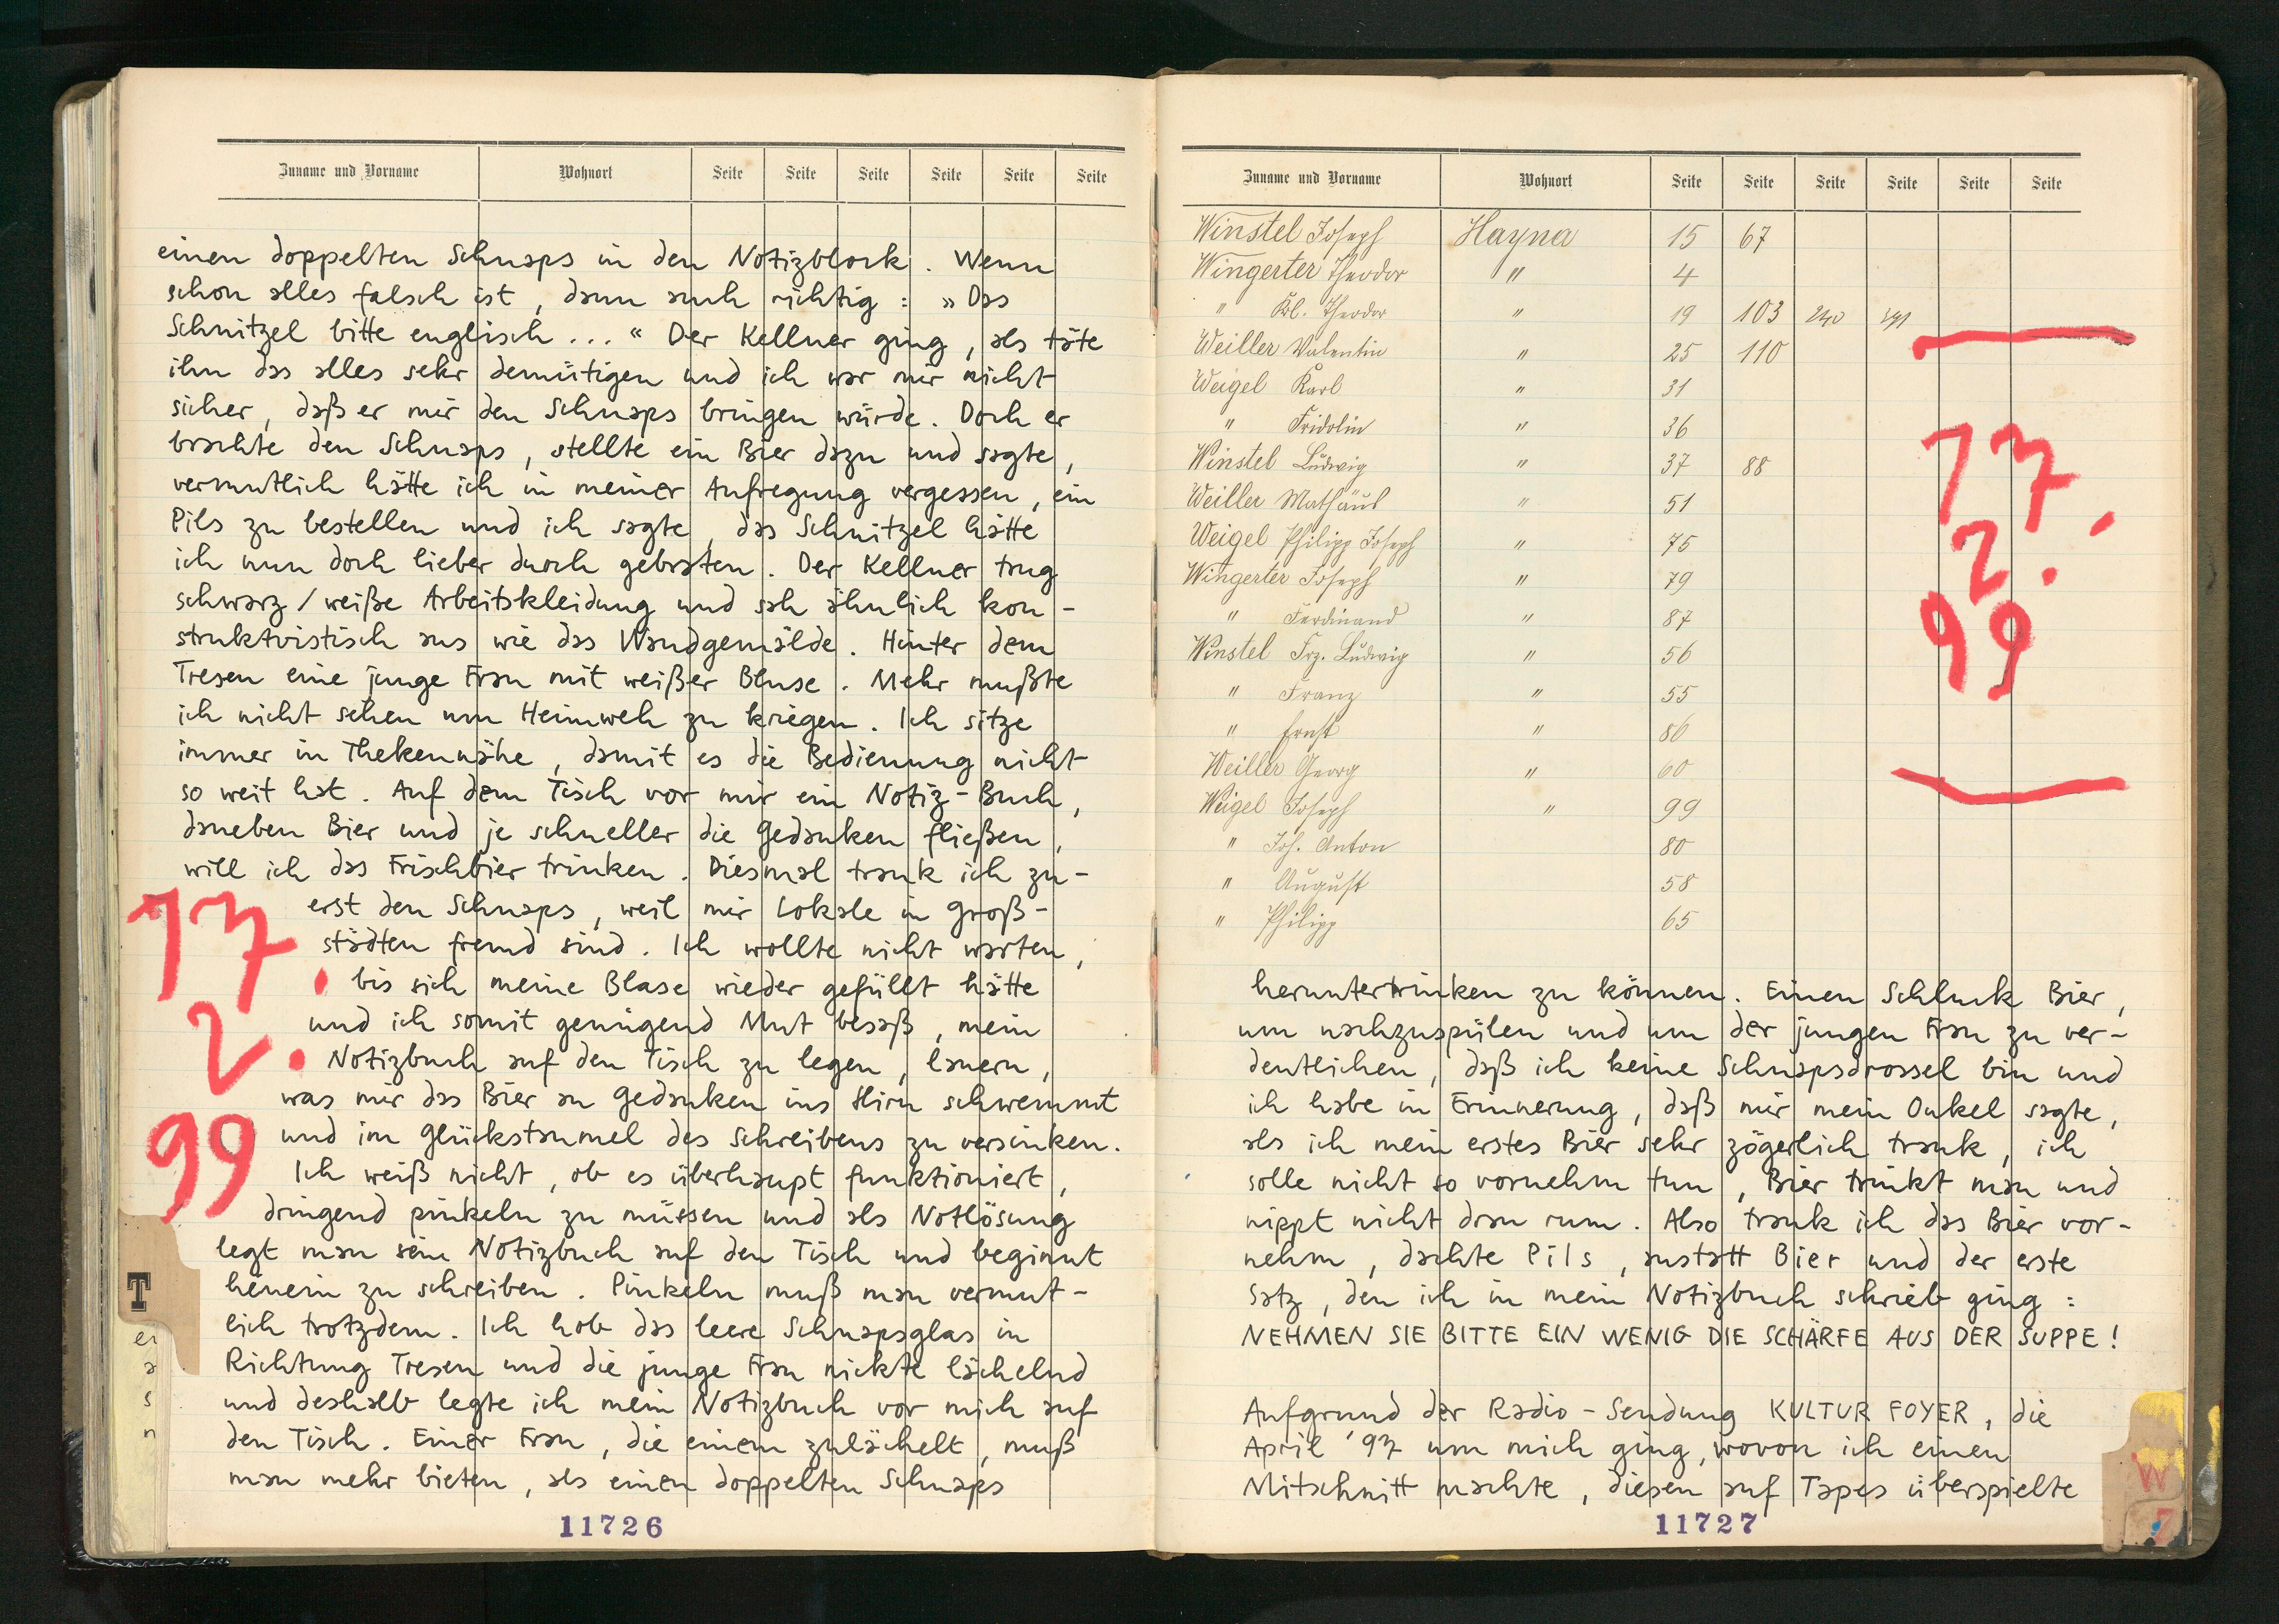 Zuname und Vorname Wohnort Seite Seite Seite Seite Seite Seite
einen doppelten Schnaps in den Notizblock. Wenn
schon alles falsch ist, dann auch richtig: »Das
Schnitzel bitte englisch...“ Der Kellner ging, als täte
ihn das alles sehr demütigen und ich war mir nicht
sicher, daß er mir den Schnaps bringen würde. Doch er
brachte den Schnaps, stellte ein Bier dazu und sagte,
vermutlich hätte ich in meiner Aufregung vergessen, ein
Pils zu bestellen und ich sagte, das Schnitzel hätte
ich nun doch lieber durch gebraten. Der Kellner trug
schwarz/weiße Arbeitskleidung und sah ähnlich kon-
struktvistisch aus wie das Wandgemälde. Hinter dem
Tresen eine junge Frau mit weißer Bluse. Mehr mußte
ich nicht sehen um Heimweh zu kriegen. Ich sitze
immer in Thekennähe, damit es die Bedienung nicht
so weit hat. Auf dem Tisch vor mir ein Notiz-Buch,
daneben Bier und je schneller die Gedanken fließen,
will ich das Frischbier trinken. Diesmal trank ich zu-
erst den Schnaps, weil mir Lokale in Groß-
städten fremd sind. Ich wollte nicht warten,
bis sich meine Blase wieder gefüllt hätte
und ich somit genügend Mut besaß, mein
Notizbuch auf den Tisch zu legen, lauern,
was mir das Bier an Gedanken ins Hirn schwemmt
und im Glückstaumel des Schreibens zu versinken.
Ich weiß nicht, ob es überhaupt funktioniert,
dringend pinkeln zu müssen und als Notlösung
legt man sein Notizbuch auf den Tisch und beginnt
hinein zu schreiben. Pinkeln muß man vermut-
lich trotzdem. Ich hob das leere Schnapsglas in
Richtung Tresen und die junge Frau nickte lächelnd
und deshalb legte ich mein Notizbuch vor mich auf
den Tisch. Einer Frau, die einem zulächelt, muß
man mehr bieten, als einen doppelten Schnaps
17.
2.
99
T
er
a
s
n
11726
Zuname und Vorname Wohnort Seite Seite Seite Seite Seite Seite
Winstel Joseph Hayna 15 67
Wingerter Theodor " 4
" Kl. Theodor " 19 103 240 241
Weiller Valentin " 25 110
Weigel Karl " 31
" Fridolin " 36
Winstel Ludwig " 37 88
Weiller Mathäus " 51
Weigel Philipp Joseph " 75
Wingerter Joseph " 79
" Ferdinand " 87
Winstel Frz. Ludwig " 56
" Franz " 55
" Ernst " 86
Weiller Georg " 60
Weigel Joseph " 99
" Joh. Anton 80
" August 58
" Philipp 65
17.
2.
99
heruntertrinken zu können. Einen Schluck Bier,
um nachzuspülen und um der jungen Frau zu ver-
deutlichen, daß ich keine Schnapsdrossel bin und
ich habe in Erinnerung, daß mir mein Onkel sagte,
als ich mein erstes Bier sehr zögerlich trank, ich
solle nicht so vornehm tun, Bier trinkt man und
nippt nicht dran rum. Also trank ich das Bier vor-
nehm, dachte Pils, anstatt Bier und der erste
Satz, den ich in mein Notizbuch schrieb ging:
NEHMEN SIE BITTE EIN WENIG DIE SCHÄRFE AUS DER SUPPE!
Aufgrund der Radio-Sendung KULTUR FOYER, die
April '97 um mich ging, wovon ich einen
Mitschnitt machte, diesen auf Tapes überspielte
W
Z
11727